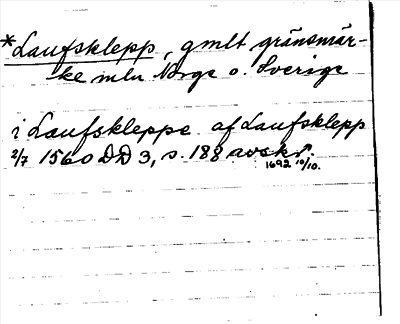 *Laufsklepp, gmlt gränsmär-
ke mln Norge o. Sverige
i Laufskleppe af Laufsklepp
2/7 1560 DD 3, s. 188 avskr.
1692 10/10.